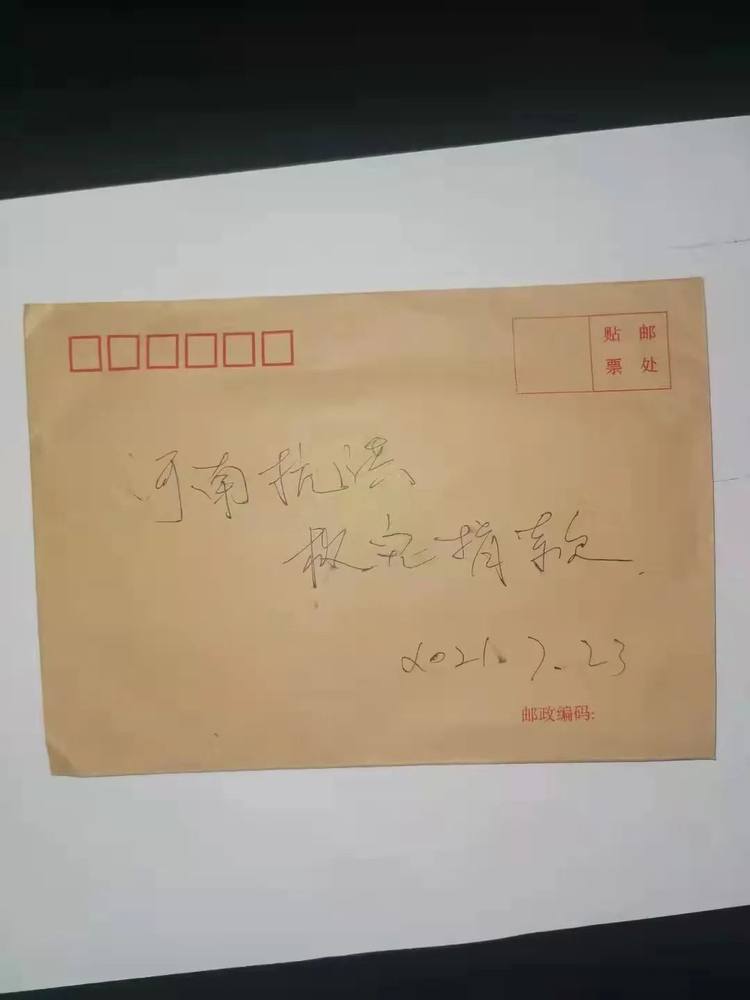 贴邮
票处
河南抗洪
救灾捐款.
2021.7.23
邮政编码: